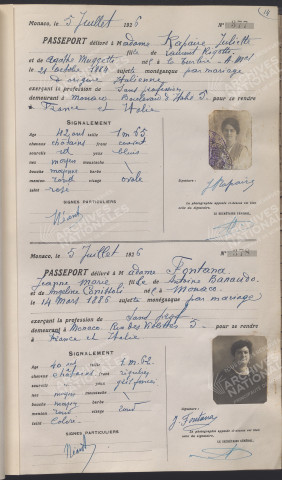 14
Monaco, le 5 Juillet 1926 N° 877
PASSEPORT délivré à Madame Rapaire Juliette
fille de Laurent Rigotti
et de Agathe Muguette née à la Turbie - A. Mes
le 24 Octobre 1884 sujette monégasque par mariage
d'origine Italienne
exerçant la profession de Sans profession
demeurant à Monaco Boulevard d'Italie 5. pour se rendre
France et Italie
SIGNALEMENT
Age 42 ans taille 1m 65
cheveux châtains front
sourcils yeux bleus
nez moyen moustache
bouche moyenne barbe
menton rond visage ovale
teint rose
SIGNES PARTICULIERS
Néant
Signature :
J Rapaire
La photographie apposée ci-dessus est bien
celle du signataire.
LE SECRÉTAIRE GÉNÉRAL,
Monaco, le 5 Juillet 1926 N° 878
PASSEPORT délivré à Madame Fontana
Jeanne Marie née de Antoine
et née à Monaco
le 14 Mars 1886 sujette monégasque par mariage
exerçant la profession de sans prof
demeurant à Monaco Rue des Violettes 5 pour se rendre
France et Italie
SIGNALEMENT
Age 40 ans taille 1m 62
cheveux châtains front
sourcils yeux gris foncé
nez moyen moustache
bouche moyen barbe
menton rond visage rond
teint coloré
SIGNES PARTICULIERS
Néant
Signature :
J. Fontana
La photographie apposée ci-dessus est bien
celle du signataire.
LE SECRÉTAIRE GÉNÉRAL,
ARCHIVES
NATIONALES